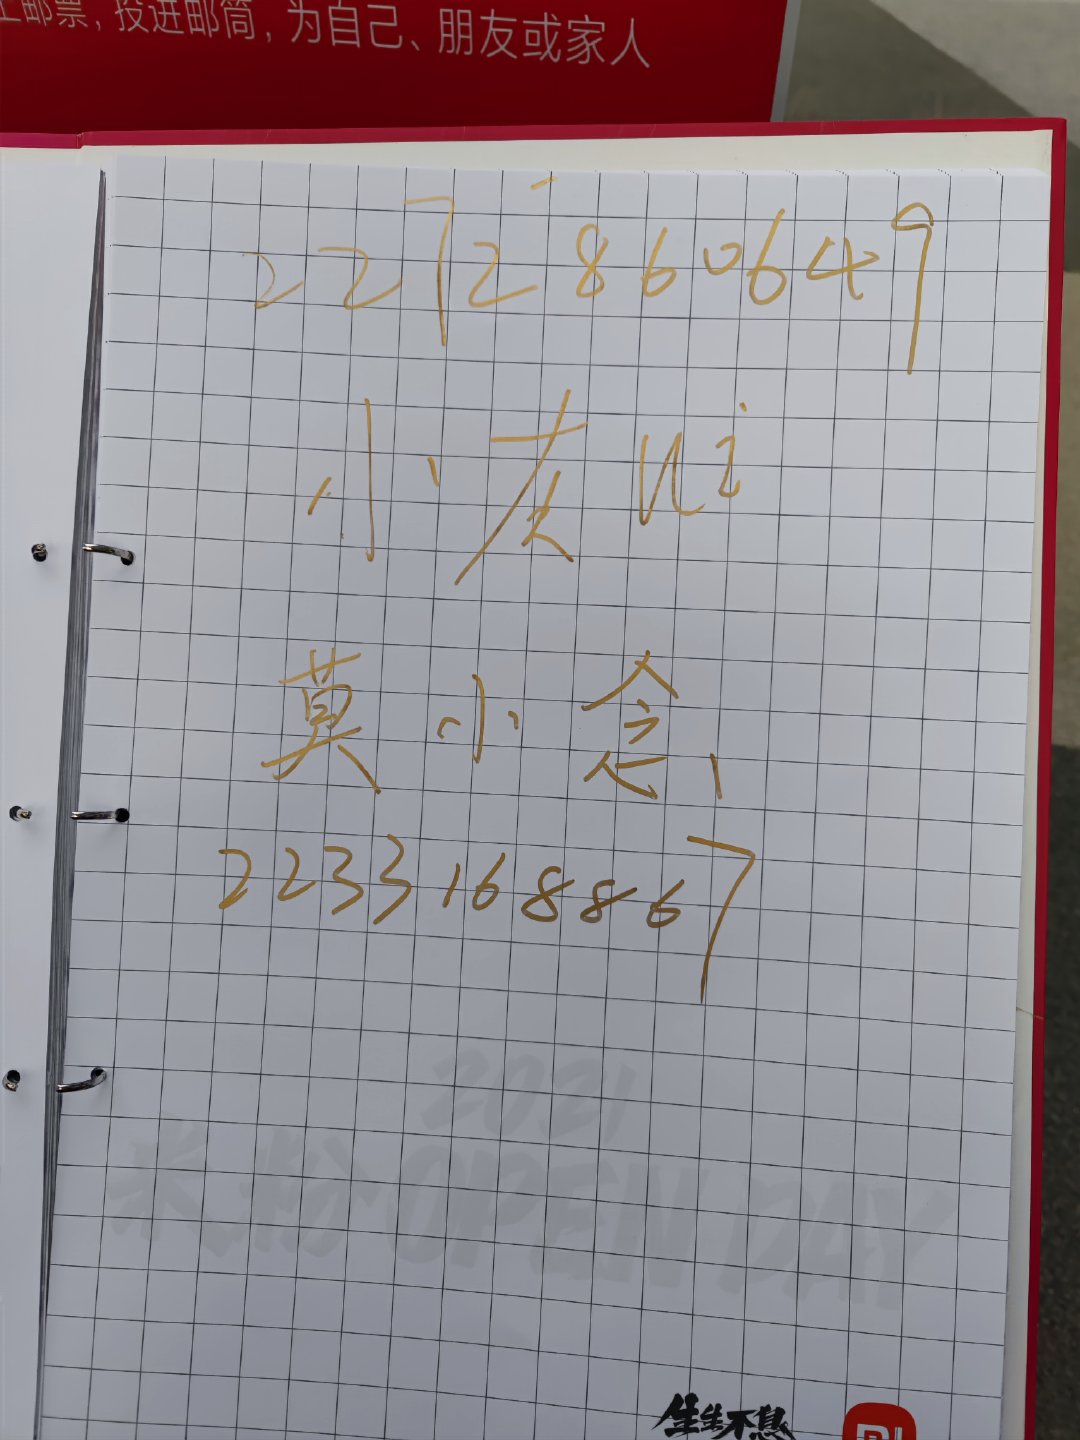 上邮票，投进邮筒，为自己、朋友或家人
2272860649
莫小念
2233168867
2021
米粉OPEN DAY
生生不息